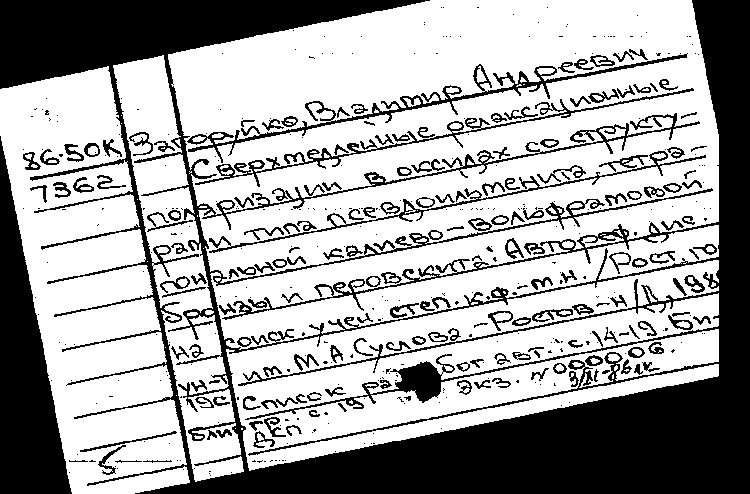 86-50К
7362
Загоруйко, Владимир Андреевич.
Сверхмедленные релаксационные
поляризации в оксидах со структу-
рами типа псевдоильменита, тетра-
гональной калиево-вольфрамовой
бронзы и перовскита: Автореф. дис.
на соиск. учен. степ. к.ф.-м.н. / Рост. го
ун-т им. М.А. Суслова. - Ростов-н/Д, 198
19с Список ра бот авт.: с. 14-19. Би-
блиогр.: с. 19 Экз. N 000006.
ДСП.
5